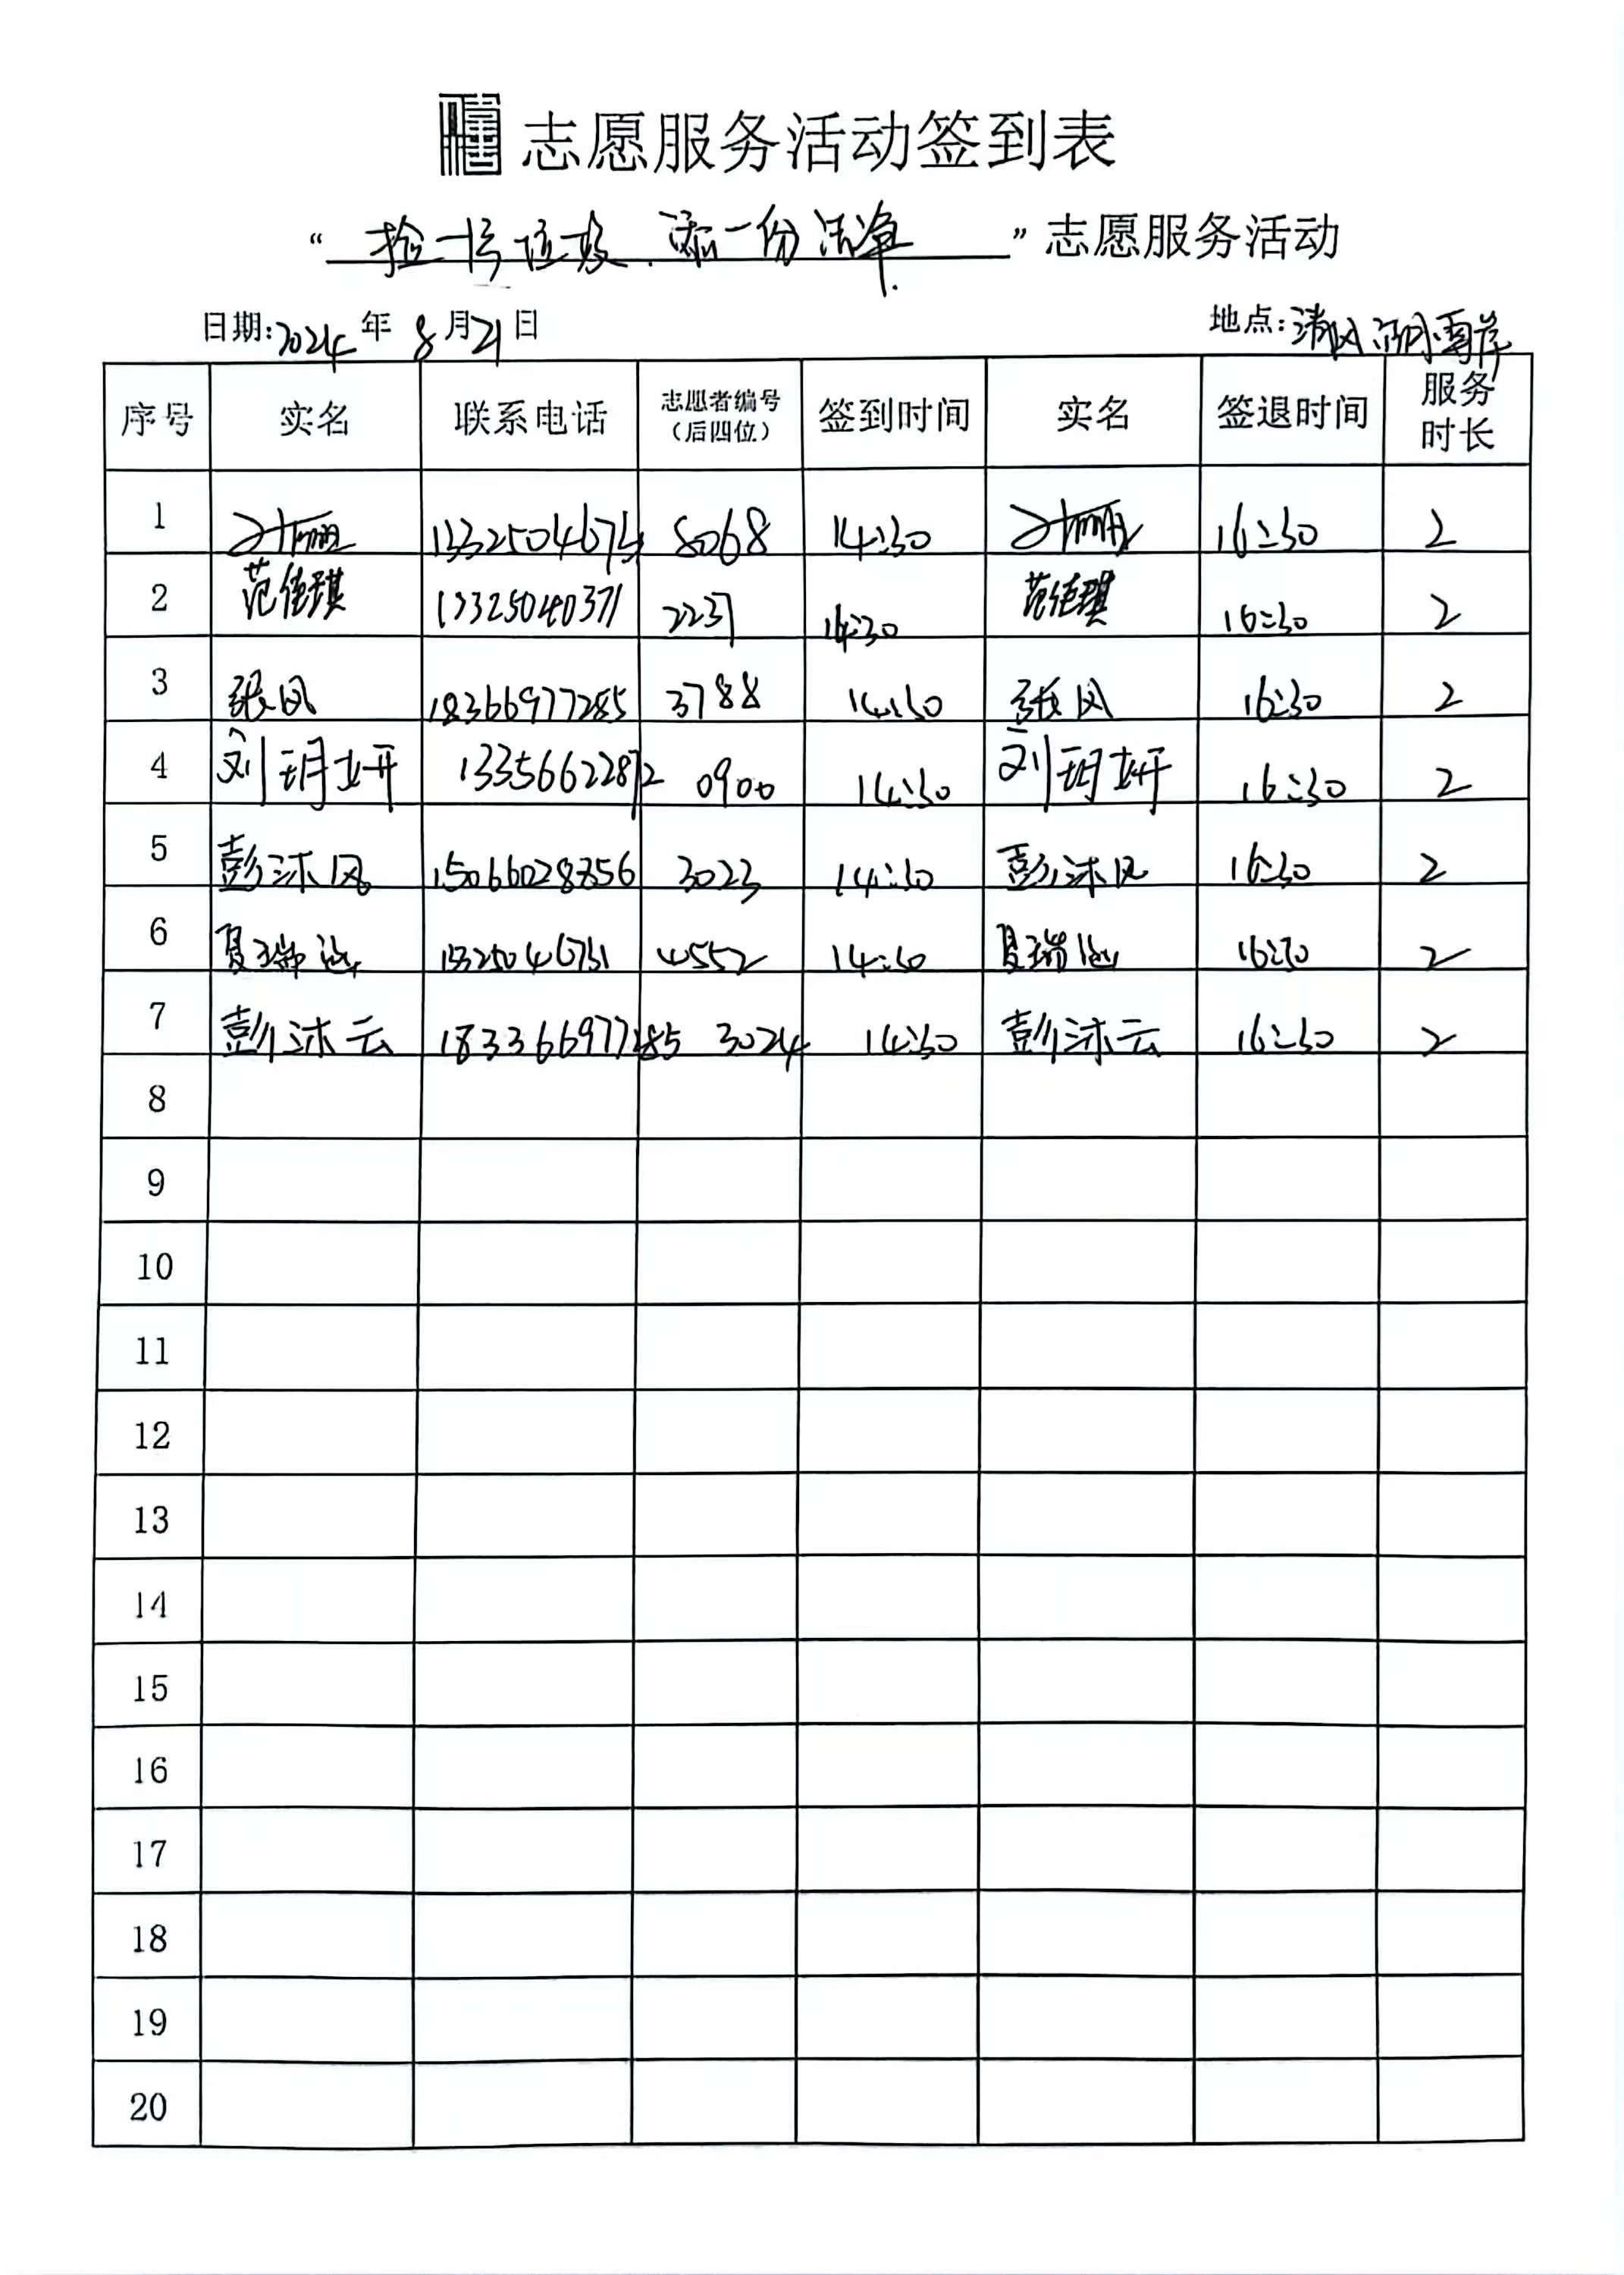 志愿服务活动签到表
“捡一片垃圾.添一份洁净.”志愿服务活动
日期:2024年8月21日 地点:清风湖南岸
序号 实名 联系电话 志愿者编号(后四位) 签到时间 实名 签退时间 服务时长
1 8068 14:30 16:30 2
2 范佳琪 13325040371 2237 14:30 范佳琪 16:30 2
3 张凤 18366977285 3788 14:30 张凤 16:30 2
4 刘玥妍 13356622872 0900 14:30 刘玥妍 16:30 2
5 彭沐风 15066028356 3023 14:30 彭沐风 16:30 2
6 4552 14:30 16:30 2
7 彭沐云 183366977285 3024 14:30 彭沐云 16:30 2
8
9
10
11
12
13
14
15
16
17
18
19
20